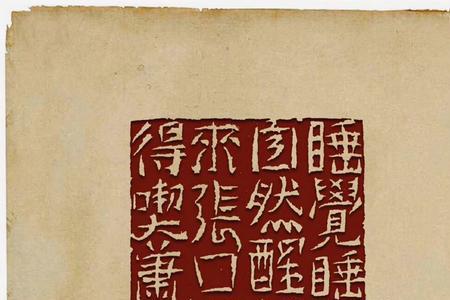 睡覺睡
自然醒
來張口
得喫